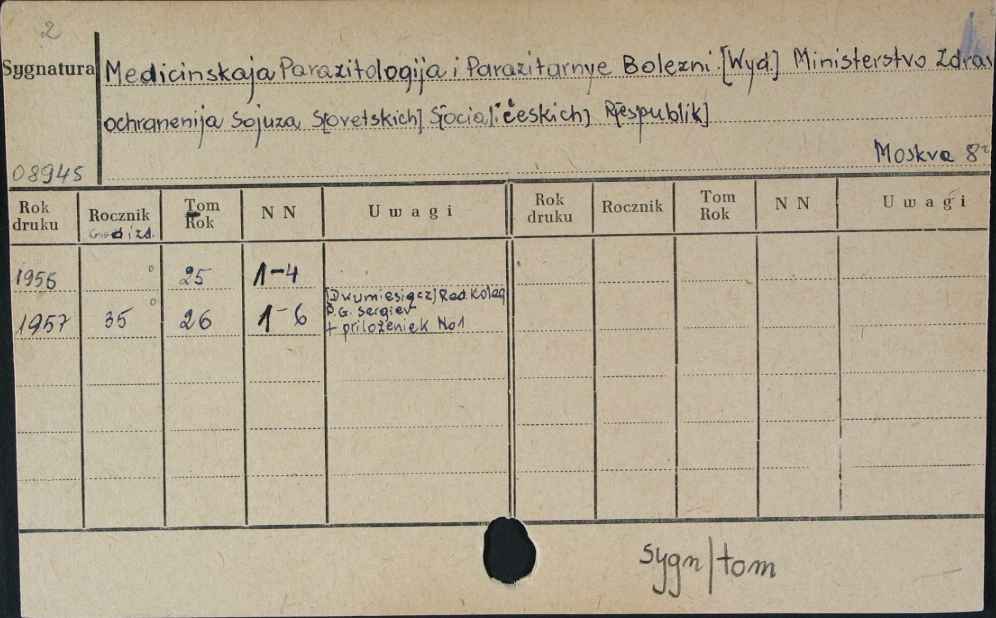 2
Sygnatura Medicinskaja Parazitologija i Parazitarnye Bolezni. [Wyd.] Ministerstvo Zdrav
ochranenija Sojuza S[ovetskich] S[ocialističeskich] R[espublik]
Moskva 8°
08945
Rok druku Rocznik Tom Rok N N Uwagi Rok druku Rocznik Tom Rok N N Uwagi
izd.
1956 25 1-4
1957 35 26 1-6 [Dwumiesięcz] Red. Koleg
P.G. Sergiev
+ priloženie k No1
sygn/tom